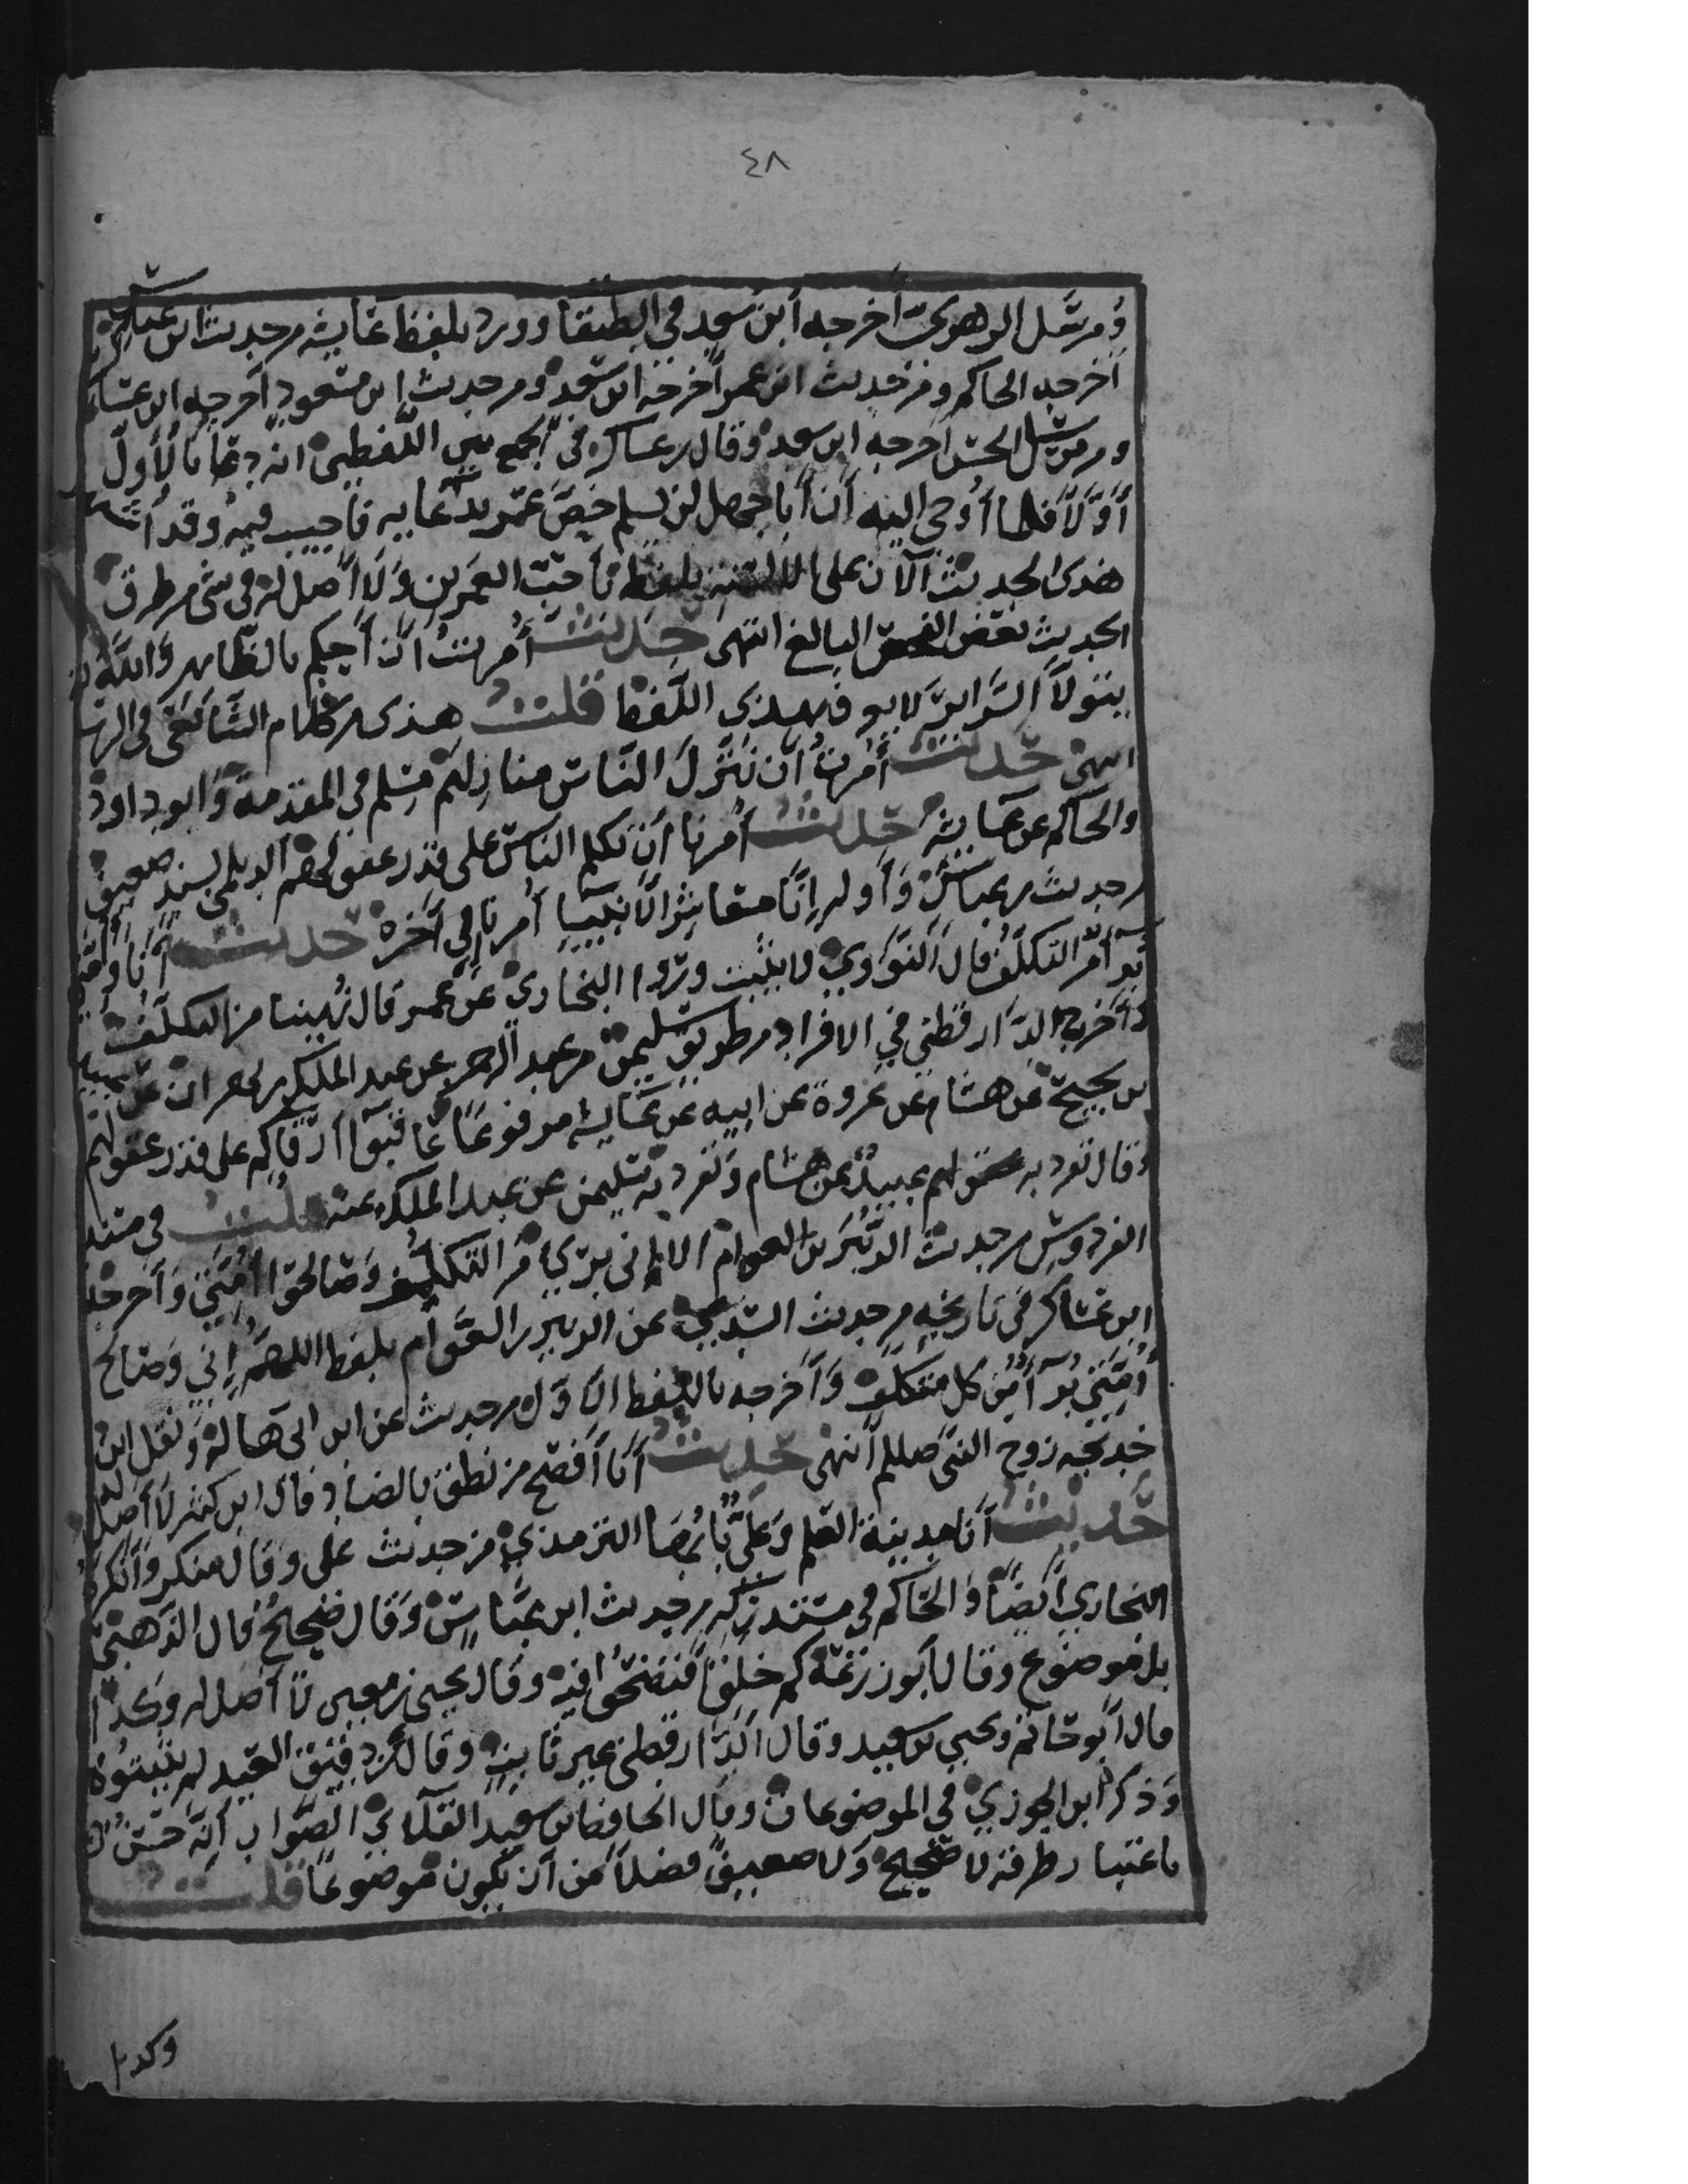 ٤٨
ومرسل الزهري أخرجه ابن سعد في الطبقا وورد بلفظ عايشه من حديث ابن عباس
أخرجه الحاكم ومن حديث ابن عمر أخرجه ابن سعد ومن حديث ابن مسعود أخرجه ابن عساكر
ومن مرسل الحسن أخرجه ابن سعد وقال بن عساكر في الجمع بين اللفظين انه دعا بالأول
أولا فلما أوحي اليه أن أبا جهل لن يسلم خص عمر بدعايه فاجيب فيه وقد اشتهر
هذى الحديث الآن على الالسنه بلفظ بأحب العمرين ولا أصل له في شى من طرق
الحديث بعض الفحص البالغ انتهى حديث أمرت أن أحكم بالظاهر والله
يتولا السراير لا يوجد بهذى اللفظ قلت هذى من كلام الشافعي في الرسا
انتهى حديث أمرت أن ننزل الناس منازلهم مسلم في المقدمة وابو داود
والحاكم عن عايشه حديث أمرنا أن نكلم الناس على قدر عقولهم الديلمي بسند ضعيف
من حديث بن عباس وأوله إنا معاشر الأنبيا أمرنا إلى آخره حديث أنا وأمتي
برآ من التكلف قال النووي لا يثبت وروا البخاري عن عمر قال نهينا من التكلف
وأخرج الدارقطني في الافراد من طريق سليمن بن عبد الرحمن عن عبد الملك بن مهران عن عبيد
بن نجيح عن هشام عن عروة عن ابيه عن عايشه مرفوعا عاقبوا أرقاكم على قدر عقولهم
وقال تفرد به عبيد عن هشام وتفرد به سليمن عن عبد الملك عنه قلت في مسند
الفردوس من حديث الزبير بن العوام الا إني بري من التكلف وصالحوا أمتي وأخرجه
ابن عساكر في تاريخه من حديث عن الزبير بن العوام بلفظ اللهم إني وصالح
أمتي برآ من كل متكلف وأخرجه باللفظ الأول من حديث عن ابن ابى هالة ونقل ابن
خديجه زوج النبي صللم انتهى حديث أنا أفصح من نطق بالضاد قال ابن كثير لا أصل له
حديث أنا مدينة العلم وعلي بابها الترمذي من حديث على وقال منكر وأنكره
البخاري أيضا والحاكم في مستدركه من حديث ابن عباس وقال صحيح قال الذهبي
بل موضوع وقال أبو زرعة كم خلق افتضحوا فيه وقال يحيى بن معين لا أصل له وكذا
قال أبو حاتم ويحيى بن سعيد وقال الدارقطنى غير ثابت وقال بن دقيق العيد لم يثبتوه
وذكره ابن الجوزي في الموضوعات وقال الحافظ ابو سعيد العلاي الصواب أنه حسن
باعتبار طرقه لا صحيح ولا ضعيف فضلا من أن يكون موضوعا قلت
وكدا